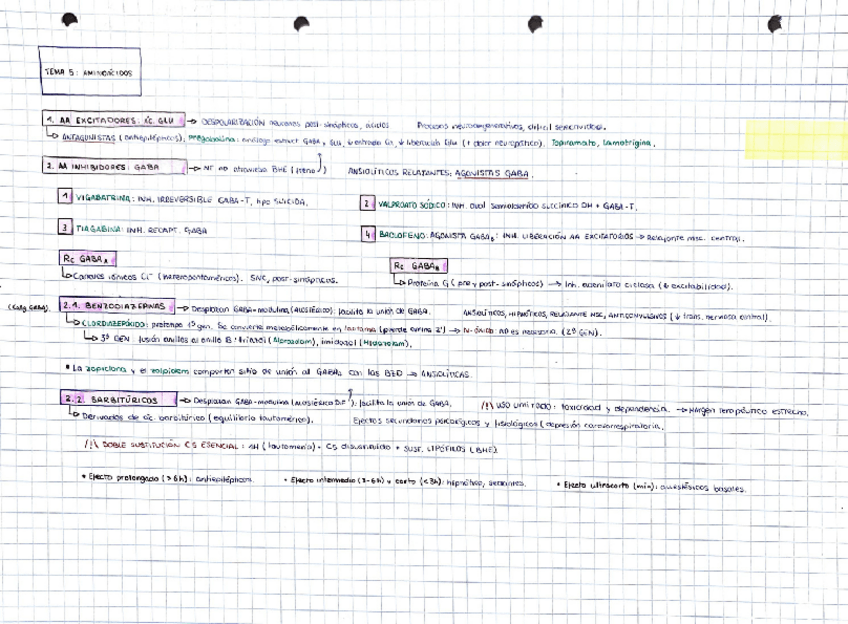 TEMA 5: AMINOÁCIDOS
1. AA EXCITADORES: Ác. GLU → DESPOLARIZACIÓN neuronas post-sinápticas, Procesos neurodegenerativos,
↳ ANTAGONISTAS (antiepilépticos), pregabalina: análogo estruct GABA, GLU, ↓ entrada Ca, ↓ liberación Glu (+ dolor neuropático). Topiramato, Lamotrigina.
2. AA INHIBIDORES: GABA → NT no atraviesa BHE (freno) ANSIOLÍTICOS RELAJANTES: AGONISTAS GABA.
1 VIGABATRINA: INH. IRREVERSIBLE GABA-T, tipo SUICIDA.
2 VALPROATO SÓDICO: INH. dual semialdehído succínico DH + GABA-T.
3 TIAGABINA: INH. RECAPT. GABA
4 BACLOFENO: AGONISTA GABA_B: INH. LIBERACIÓN AA EXCITATORIOS → Relajante musc. central.
Rc GABA_A
↳ Canales iónicos Cl⁻ (heteropentaméricos). SNC, post-sinápticos.
Rc GABA_B
↳ Proteína G (pre y post-sinápticos) → Inh. adenilato ciclasa (↓ excitabilidad).
2.1. BENZODIAZEPINAS → Desplazan GABA-modulina (ALOSTÉRICO): facilita la unión de GABA. ANSIOLÍTICOS, HIPNÓTICOS, RELAJANTE MSC, ANTICONVULSIVOS (↓ trans. nerviosa central).
↳ CLORDIAZEPÓXIDO: prototipo 1ª gen. Se convierte metabólicamente en lactama (pierde amina 2') → N-óxido: NO es necesario. (2ª GEN).
↳ 3ª GEN: fusión anillos al anillo B: triazol (Alprazolam), imidazol (Midazolam).
• La zopiclona y el zolpidem comparten sitio de unión al GABA_A con las BZD → ANSIOLÍTICAS.
2.2. BARBITÚRICOS → Desplazan GABA-modulina (ALOSTÉRICO): facilita la unión de GABA. /!\ USO LIMITADO: toxicidad y dependencia. → Margen terapéutico estrecho.
↳ Derivados de ác. barbitúrico (equilibrio tautomérico). Efectos secundarios psicológicos y fisiológicos (depresión cardiorrespiratoria).
/!\ DOBLE SUSTITUCIÓN C5 ESENCIAL: 1H (tautomería) - C5 disustituido + SUST. LIPÓFILOS (BHE)
• Efecto prolongado (>6h): antiepilépticos. • Efecto intermedio (3-6h) y corto (<3h): hipnóticos, sedantes. • Efecto ultracorto (min): anestésicos basales.